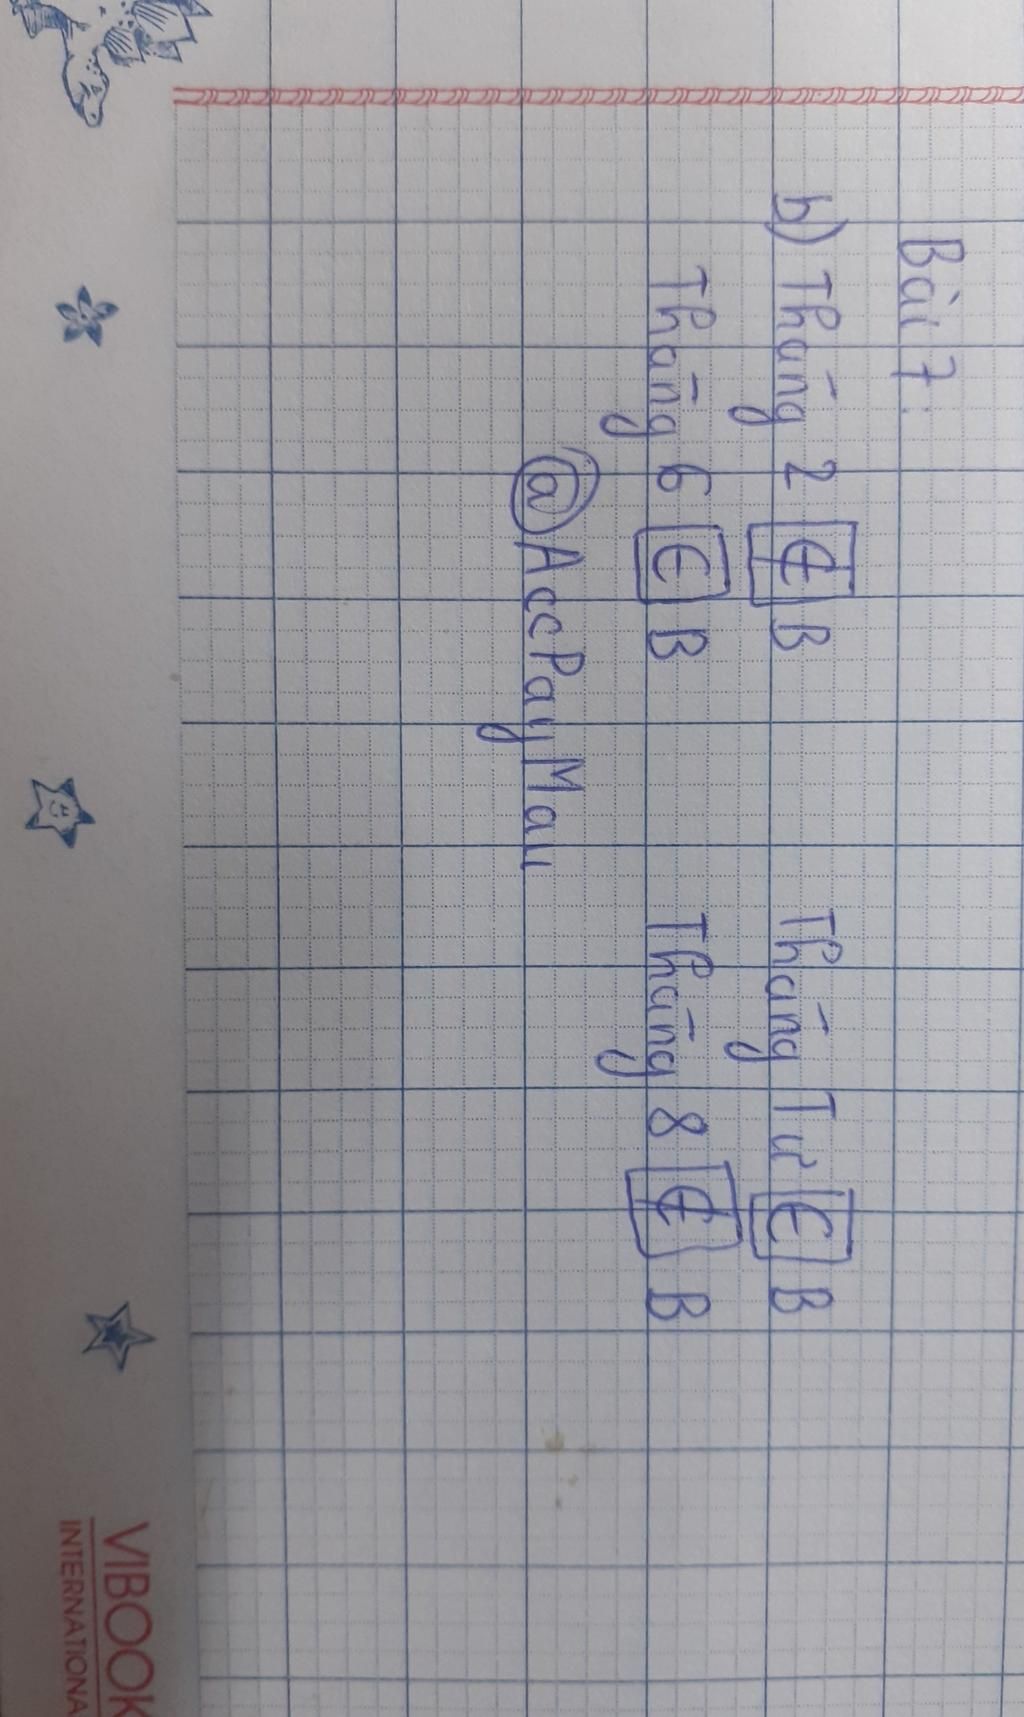 Bài 7:
b) Tháng 2 ∉ B Tháng Tư ∈ B
Tháng 6 ∈ B Tháng 8 ∉ B
@AccPayMau
VIBOOK
INTERNATIONA